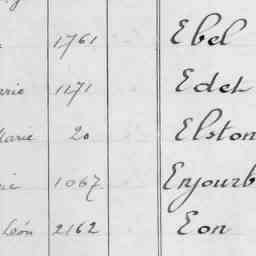 1761 Ebel
arie 1171 Edet
Marie 20 Elston
rie 1067 Enjourb
León 2162 Eon